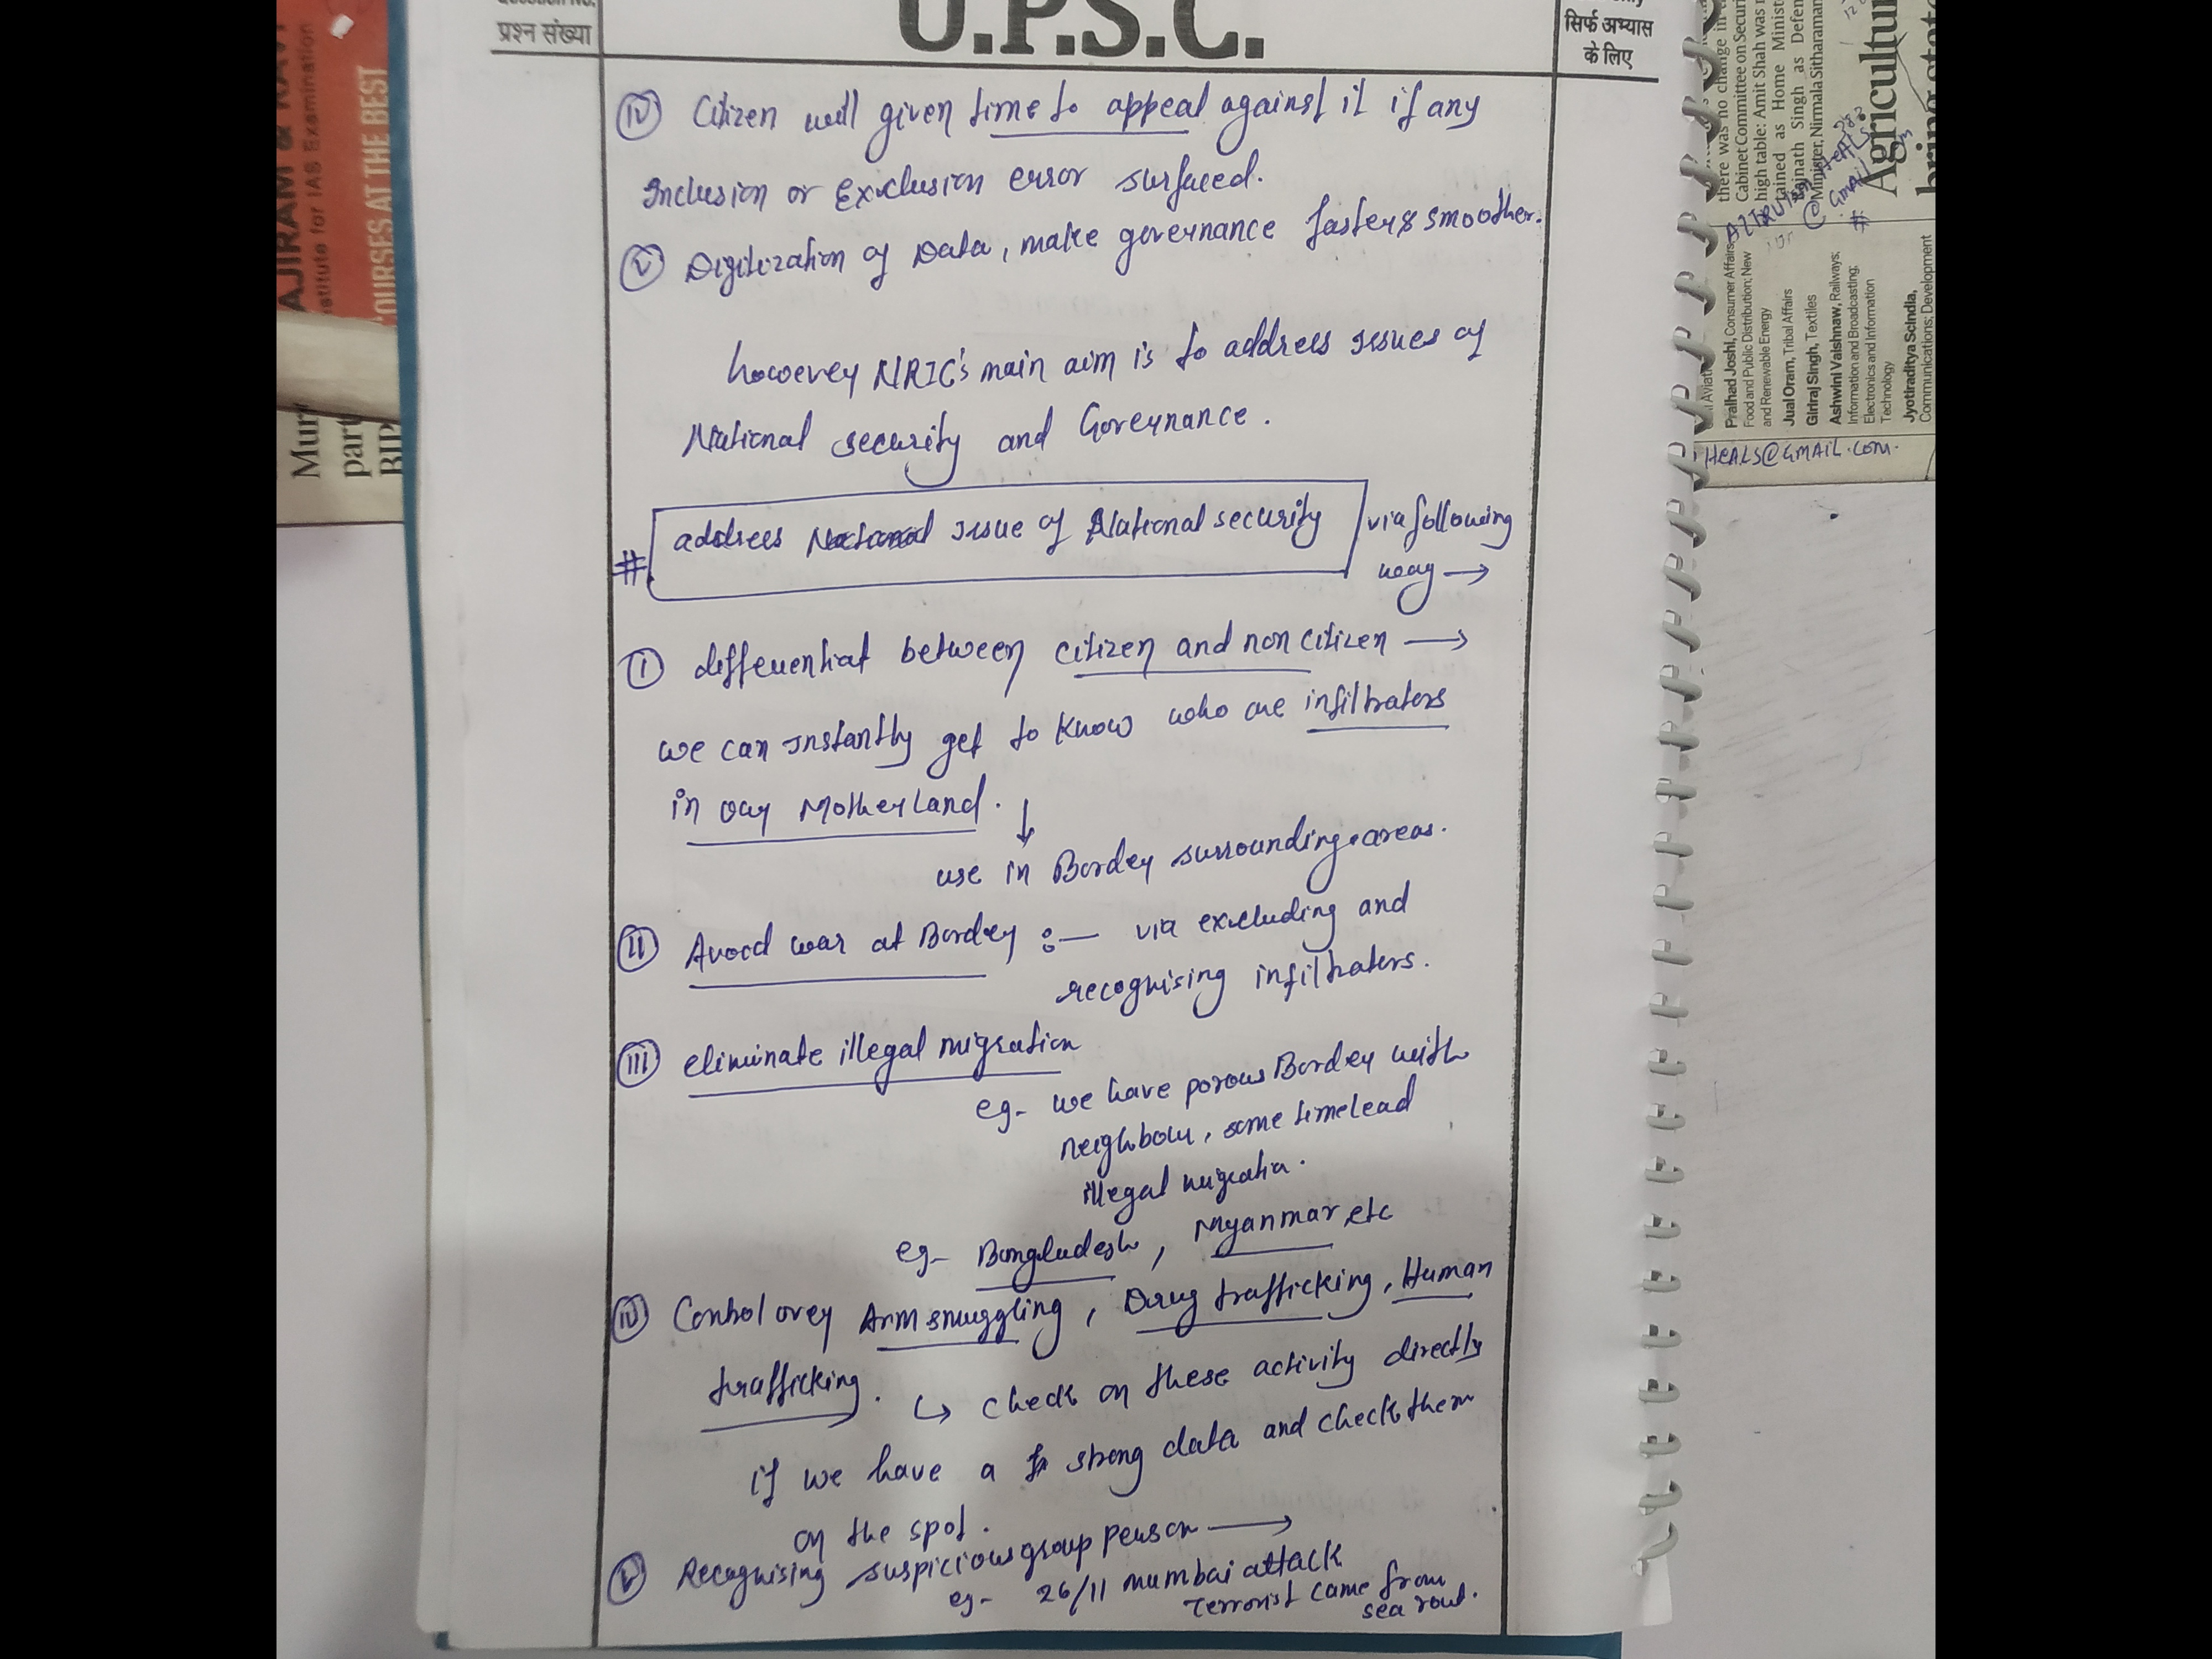 प्रश्न संख्या
U.P.S.C.
सिर्फ अभ्यास
के लिए
(iv) Citizen will given time to appeal against it if any
Inclusion or Exclusion error surfaced.
(v) Digitization of Data, make governance faster & smoother.
however NRIC's main aim is to address issues of
National security and Governance.
# address issue of National security via following
way →
(i) differential between citizen and non citizen →
we can instantly get to know who are infiltraters
in our Motherland. ↓
use in Border surrounding areas.
(ii) Avoid war at Border :— via excluding and
recognising infiltraters.
(iii) eliminate illegal migration
eg- we have porous Border with
neighbour, some time lead
illegal migration.
eg- Bangladesh, Myanmar, etc
(iv) Control over Arm smuggling, Drug trafficking, Human
trafficking. ↳ check on these activity directly
if we have a strong data and check them
on the spot.
(v) Recognising suspicious group person →
eg- 26/11 mumbai attack
Terrorist came from
sea rout.
AJIRAM &
stitute for IAS Examination
OURSES AT THE BEST
Mur
part
BJP
there was no change in
Cabinet Committee on Securi
high table: Amit Shah was
tained as Home Minist
ajnath Singh as Defen
Minister, Nirmala Sitharaman
Agricultur
Pralhad Joshi, Consumer Affairs,
Food and Public Distribution; New
and Renewable Energy
Jual Oram, Tribal Affairs
Giriraj Singh, Textiles
Ashwini Vaishnaw, Railways;
Information and Broadcasting;
Electronics and Information
Technology
Jyotiraditya Scindia,
Communications; Development
HEALS@GMAIL.COM.